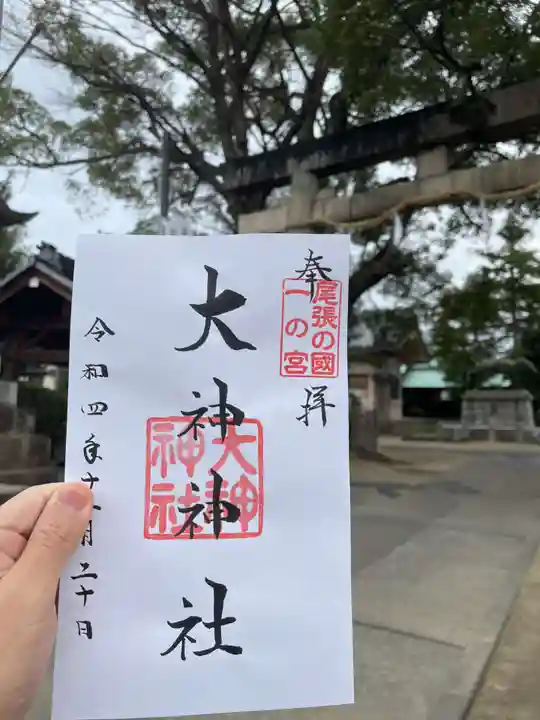 奉拝
尾張の國
一の宮
大神神社
大神
神社
令和四年十一月二十日